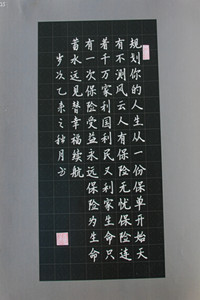 规划你的人生从一份保单开始天
有不测风云人有保险无忧保险连
着千万家利国利民又利家生命只
有一次保险受益永远保险为生命
蓄水远见赞幸福续航
岁次乙未之秋月书